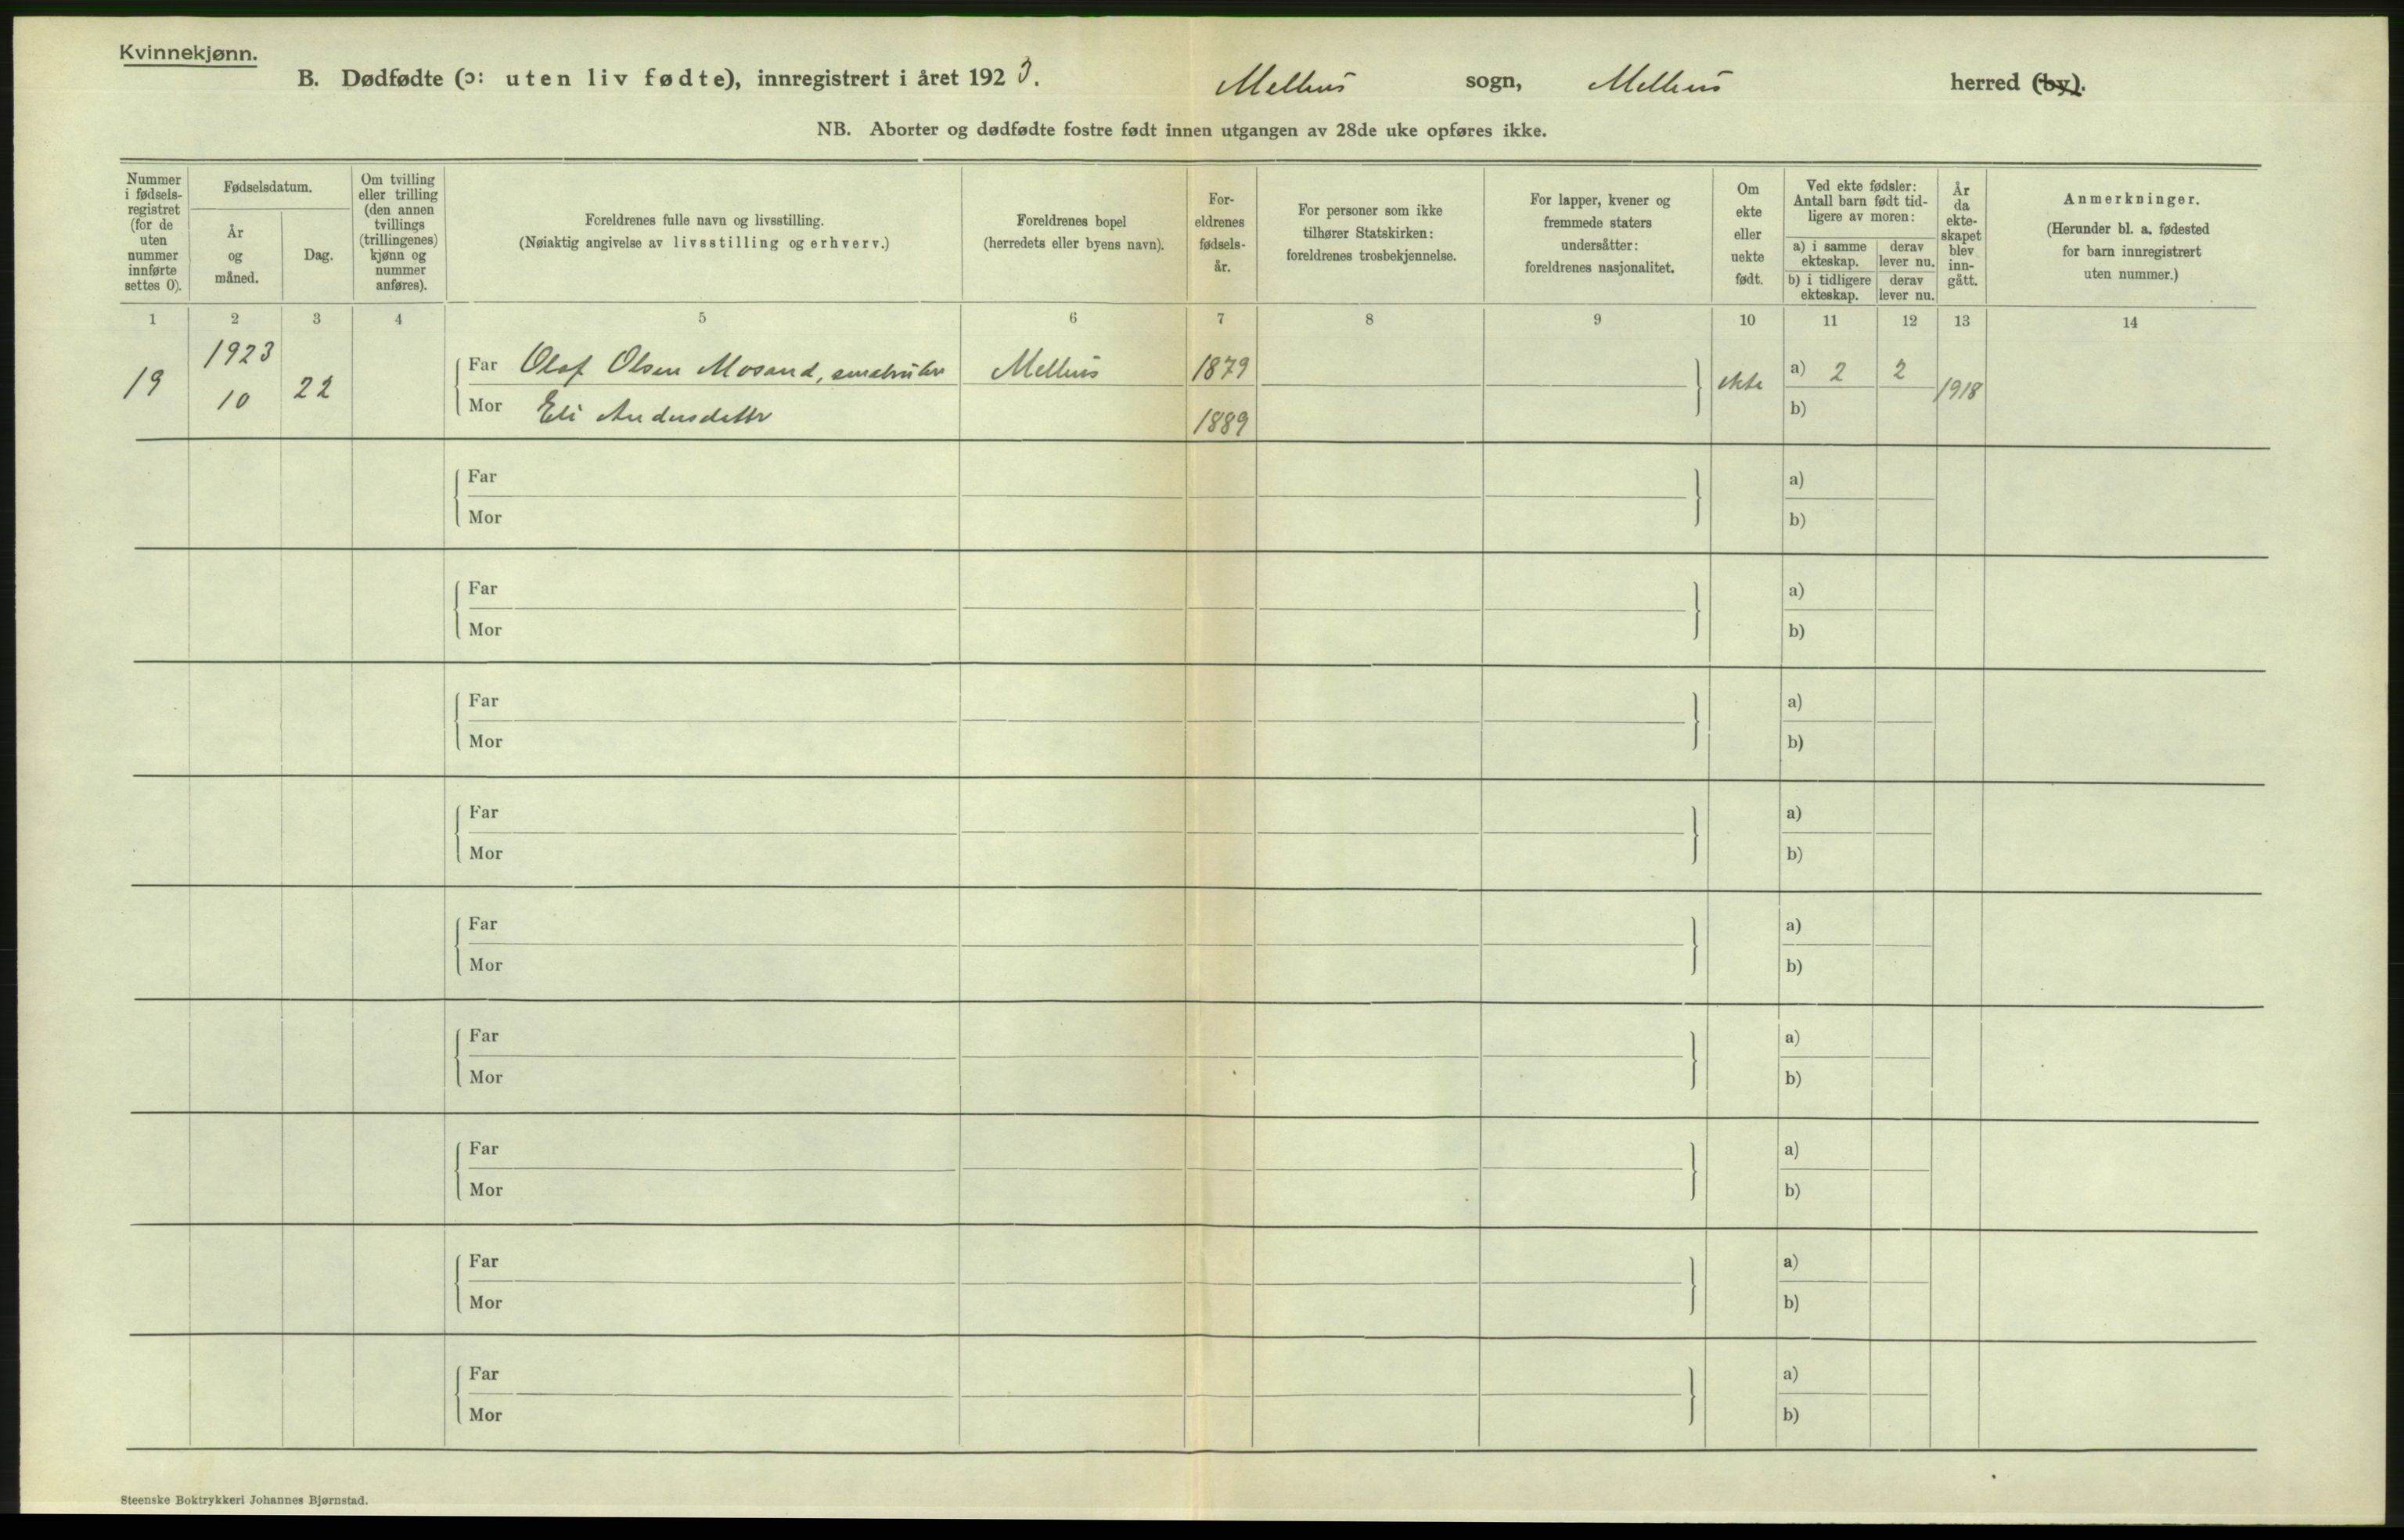 Kvinnekjønn.
B. Dødfødte (ɔ: uten liv fødte), innregistrert i året 1923. Melhus sogn, Melhus herred (by).
NB. Aborter og dødfødte fostre født innen utgangen av 28de uke opføres ikke.
Nummer i fødsels-registret (for de uten nummer innførte settes 0).
Fødselsdatum.
År og måned.
Dag.
Om tvilling eller trilling (den annen tvillings (trillingenes) kjønn og nummer anføres).
Foreldrenes fulle navn og livsstilling.
(Nøiaktig angivelse av livsstilling og erhverv.)
Foreldrenes bopel
(herredets eller byens navn).
For-eldrenes fødsels-år.
For personer som ikke tilhører Statskirken: foreldrenes trosbekjennelse.
For lapper, kvener og fremmede staters undersåtter: foreldrenes nasjonalitet.
Om ekte eller uekte født.
Ved ekte fødsler: Antall barn født tid-ligere av moren:
a) i samme ekteskap.
derav lever nu.
b) i tidligere ekteskap.
derav lever nu.
År da ekte-skapet blev inn-gått.
Anmerkninger.
(Herunder bl. a. fødested for barn innregistrert uten nummer.)
1 2 3 4 5 6 7 8 9 10 11 12 13 14
19 1923 10 22
Far Olaf Olsen Mosand, småbruker Melhus 1879 ekte a) 2 2 1918
Mor Eli Andersdatter 1889 b)
Far a)
Mor b)
Far a)
Mor b)
Far a)
Mor b)
Far a)
Mor b)
Far a)
Mor b)
Far a)
Mor b)
Far a)
Mor b)
Far a)
Mor b)
Far a)
Mor b)
Steenske Boktrykkeri Johannes Bjørnstad.